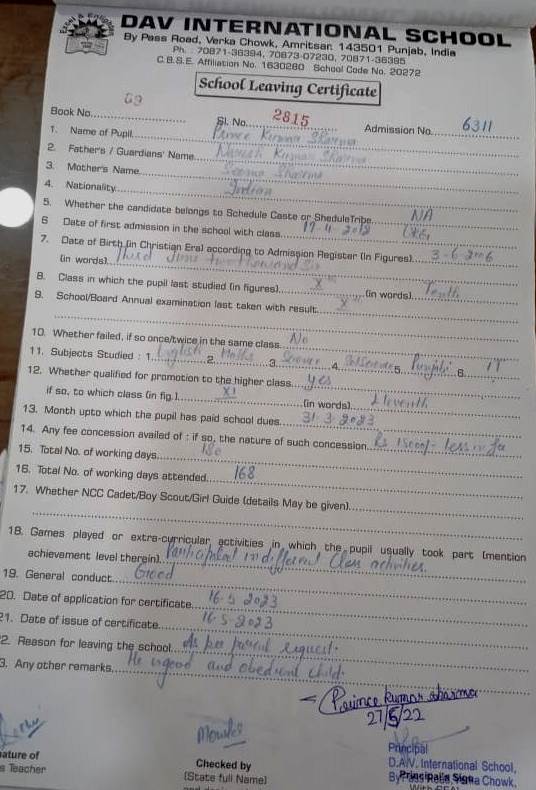 DAV INTERNATIONAL SCHOOL
By Pass Road, Verka Chowk, Amritsar. 143501 Punjab, India
Ph. : 70871-36394, 70873-07230, 70871-36395
C.B.S.E. Affiliation No. 1630280 School Code No. 20272
School Leaving Certificate
Book No. 59 Sl. No. 2815 Admission No. 6311
1. Name of Pupil Prince Kumar Sharma
2. Father's / Guardians' Name Naresh Kumar Sharma
3. Mother's Name Seema Sharma
4. Nationality Indian
5. Whether the candidate belongs to Schedule Caste or SheduleTribe NA
6 Date of first admission in the school with class UKG
7. Date of Birth (in Christian Era) according to Admission Register (in Figures) 3-6-2006
(in words) Third June two thousand six
8. Class in which the pupil last studied (in figures) Xth (in words) Tenth
9. School/Board Annual examination last taken with result Xth
10. Whether failed, if so once/twice in the same class No
11. Subjects Studied : 1. English 2. Maths 3. Science 4. S.Science 5. Punjabi 6. IT
12. Whether qualified for promotion to the higher class yes
if so, to which class (in fig.) XI (in words) Eleventh
13. Month upto which the pupil has paid school dues 31-3-2023
14. Any fee concession availed of : if so, the nature of such concession Rs less in fee
15. Total No. of working days 180
16. Total No. of working days attended 168
17. Whether NCC Cadet/Boy Scout/Girl Guide (details May be given)
18. Games played or extra-curricular activities in which the pupil usually took part (mention
achievement level therein) Participated in different Class activities.
19. General conduct Good
20. Date of application for certificate 16-5-2023
21. Date of issue of certificate 16-5-2023
2. Reason for leaving the school As per parent request.
3. Any other remarks He is good and obedient child.
Prince Kumar Sharma
27/5/22
ature of
s Teacher
Checked by
(State full Name)
Principal
D.A.V. International School,
Principal's Sign
Chowk,